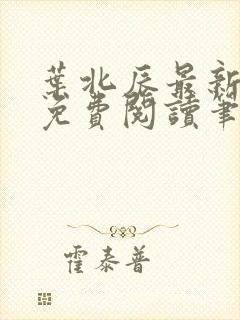 葉北辰最新
免費閱讀筆
霍泰普